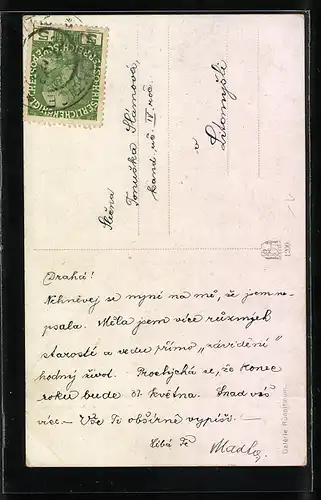 Slečna
Tonuška Slámová,
kand. uč. IV. roč.
v
Litomyšli
Drahá!
Nehněvej se nyní na mě, že jsem ne-
psala. Měla jsem více různých
starostí a vedu přímo „závidění"
hodný život. Proslýchá se, že konec
roku bude 31. května. Snad víš
více. — Vše Ti obšírně vypíši. —
Líbá Tě
Madla.
1200
Galerie Rudolfinum